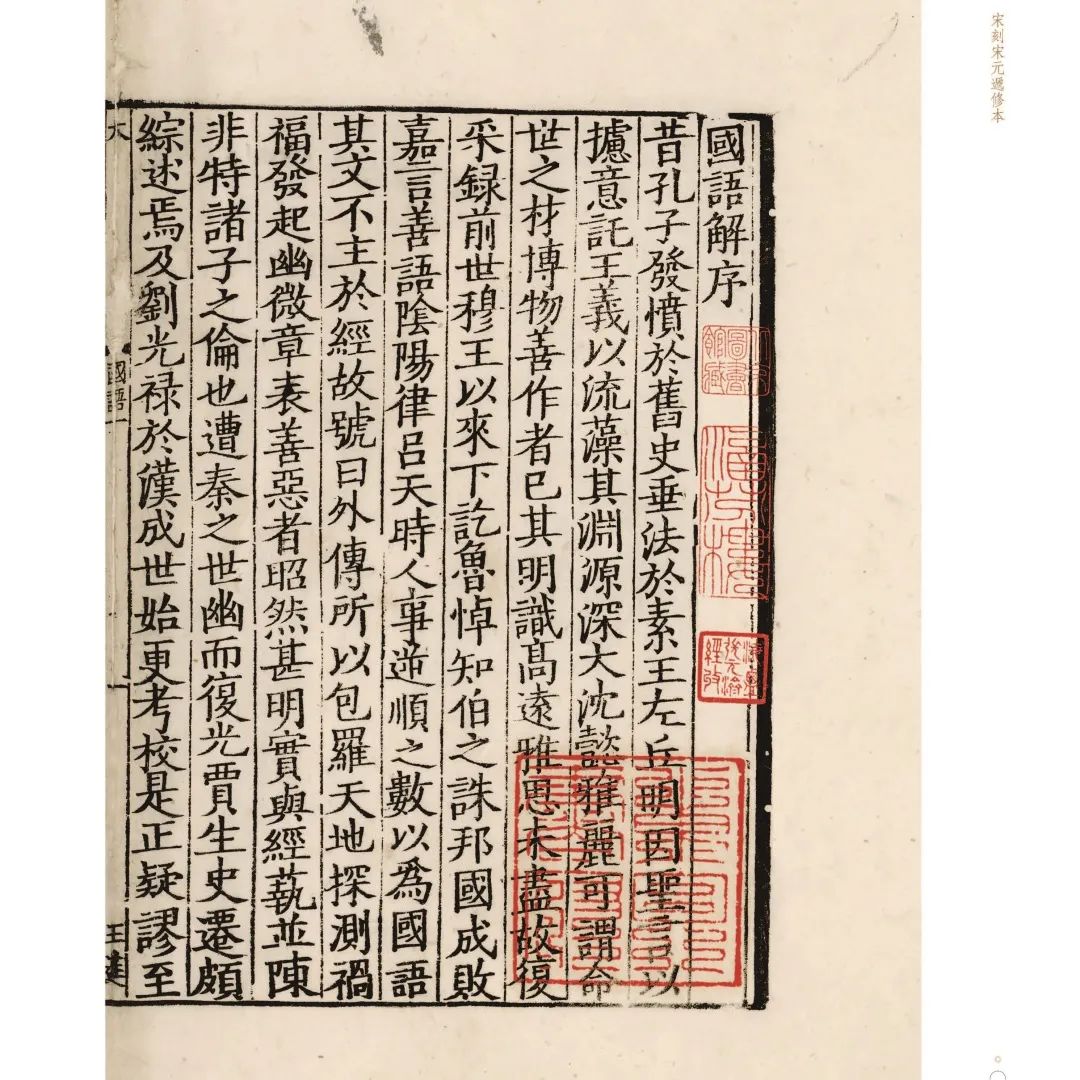 宋刻宋元遞修本
國語解序
昔孔子發憤於舊史垂法於素王左丘明因聖言以
攄意託王義以流藻其淵源深大沈懿雅麗可謂命
世之材博物善作者已其明識高遠雅思未盡故復
采録前世穆王以來下訖魯悼知伯之誅邦國成敗
嘉言善語陰陽律呂天時人事逆順之數以為國語
其文不主於經故號曰外傳所以包羅天地探測禍
福發起幽微章表善惡者昭然甚明實與經藝並陳
非特諸子之倫也遭秦之世幽而復光賈生史遷頗
綜述焉及劉光禄於漢成世始更考校是正疑謬至
國語一
王